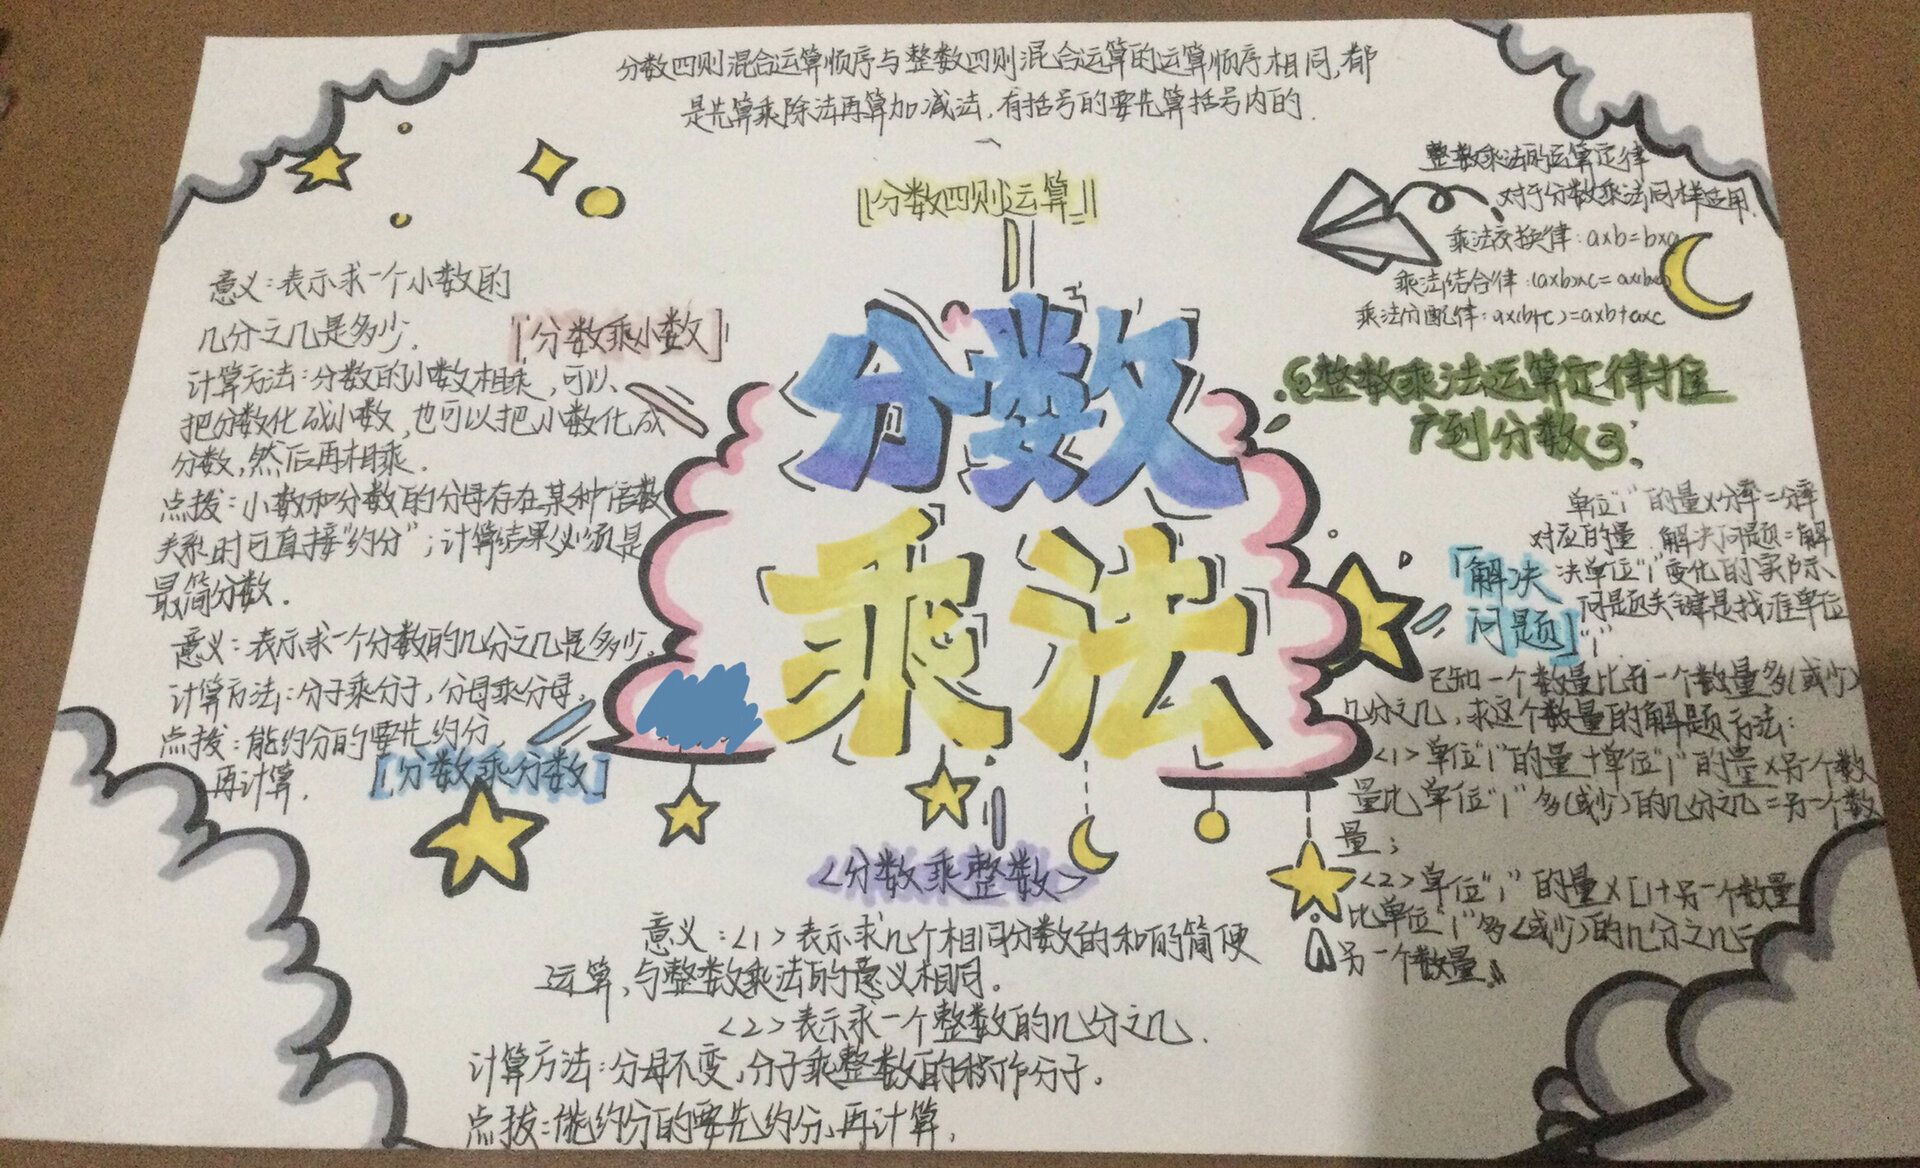 分数四则混合运算顺序与整数四则混合运算的运算顺序相同,都
是先算乘除法再算加减法,有括号的要先算括号内的.
分数四则运算
整数乘法的运算定律
对于分数乘法同样适用.
乘法交换律:a×b=b×a
乘法结合律:(a×b)×c=a×(b×
乘法分配律:a×(b+c)=a×b+a×c
整数乘法运算定律推
广到分数
意义:表示求一个小数的
几分之几是多少.
分数乘小数
计算方法:分数的小数相乘,可以
把分数化成小数,也可以把小数化成
分数,然后再相乘.
点拨:小数和分数的分母存在某种倍数
关系时可直接“约分”;计算结果必须是
最简分数.
意义:表示求一个分数的几分之几是多少.
计算方法:分子乘分子,分母乘分母.
点拨:能约分的要先约分,
再计算.
[分数乘分数]
分数
乘法
单位“1”的量×分率=分率
对应的量 解决问题=解
决单位“1”变化的实际、
问题关键是找准单位
“1”
「解决
问题」
已知一个数量比另一个数量多(或少)
几分之几,求这个数量的解题方法:
<1>单位“1”的量+单位“1”的量×另个数
量比单位“1”多(或少)的几分之几=另一个数
量;
<2>单位“1”的量×[1+另一个数量
比单位“1”多<或少>的几分之几=
另一个数量.
<分数乘整数>
意义:<1>表示求几个相同分数的和的简便
运算,与整数乘法的意义相同。
<2>表示求一个整数的几分之几.
计算方法:分母不变,分子乘整数的积作分子.
点拨:能约分的要先约分,再计算,